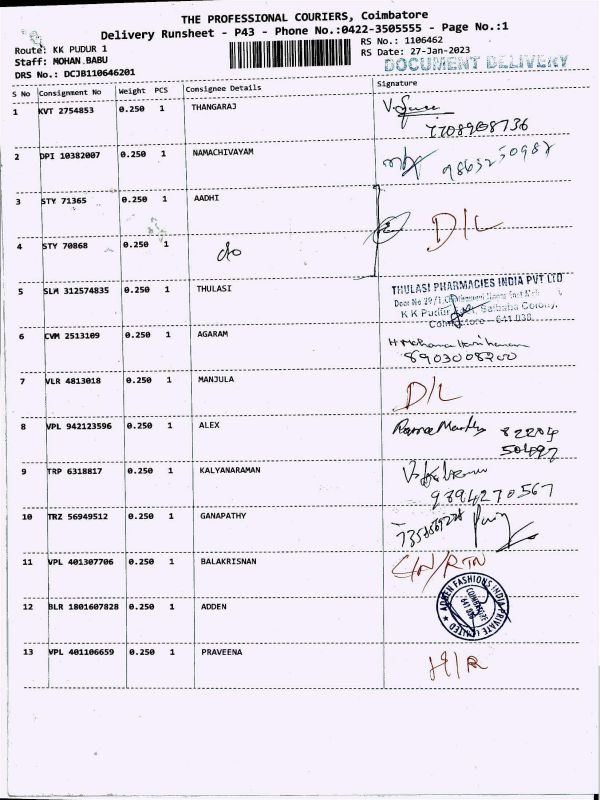 THE PROFESSIONAL COURIERS, Coimbatore
Delivery Runsheet - P43 - Phone No.:0422-3505555 - Page No.:1
Route: KK PUDUR 1
Staff: MOHAN BABU
DRS No.: DCJB110646201
RS No.: 1106462
RS Date: 27-Jan-2023
DOCUMENT DELIVERY
S No Consignment No Weight PCS Consignee Details Signature
1 KVT 2754853 0.250 1 THANGARAJ
7708908736
2 DPI 10382007 0.250 1 NAMACHIVAYAM 9865250982
3 STY 71365 0.250 1 AADHI D/L
4 STY 70868 0.250 1 do
5 SLM 312574835 0.250 1 THULASI
THULASI PHARMACIES INDIA PVT LTD
Door No 29/1,
K K Pudur Saibaba Colony,
Coimbatore - 641 038.
6 CVM 2513109 0.250 1 AGARAM
8903008200
7 VLR 4813018 0.250 1 MANJULA D/L
8 VPL 942123596 0.250 1 ALEX 82204
50497
9 TRP 6318817 0.250 1 KALYANARAMAN
9894270567
10 TRZ 56949512 0.250 1 GANAPATHY
11 VPL 401307706 0.250 1 BALAKRISNAN /RTN
12 BLR 1801607828 0.250 1 ADDEN
ADDEN FASHIONS INDIA PRIVATE LIMITED
COIMBATORE
13 VPL 401106659 0.250 1 PRAVEENA H/R